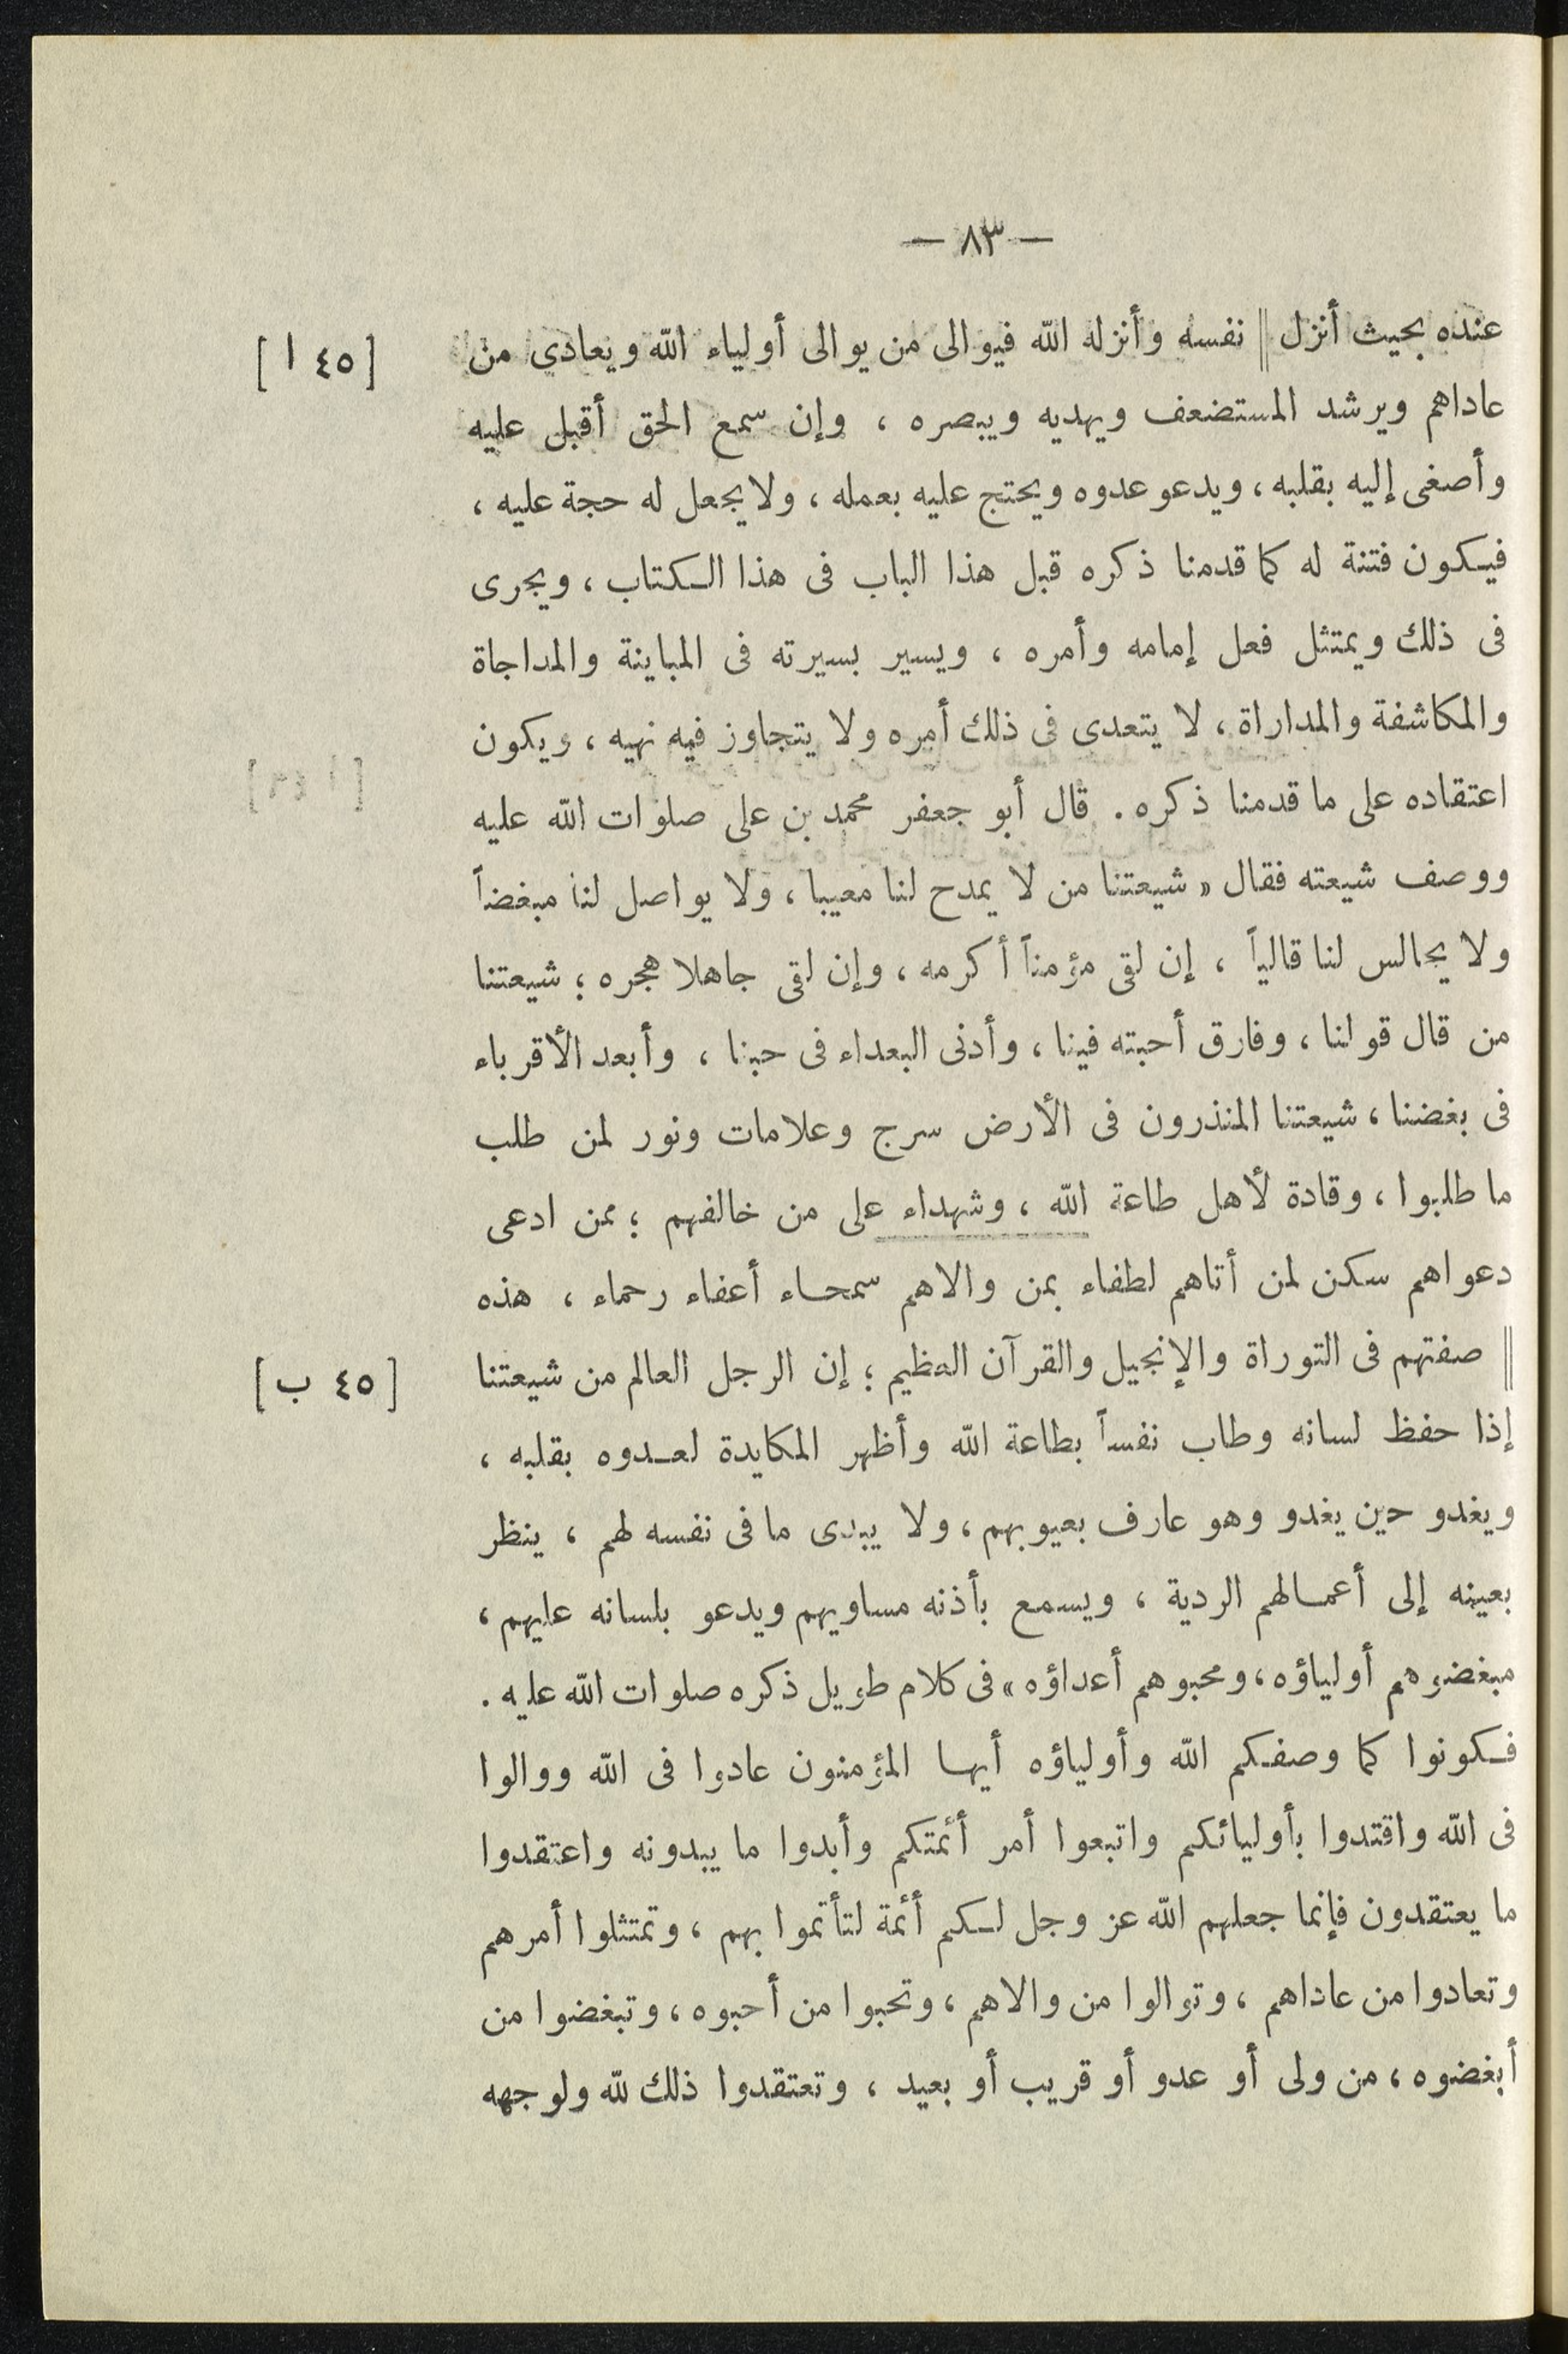 — ٨٣ —
عنده بحيث أنزل || نفسه وأنزله الله فيوالى من يوالى أولياء الله ويعادى من [٤٥ ا]
عاداهم ويرشد المستضعف ويهديه ويبصره ، وإن سمع الحق أقبل عليه
وأصغى إليه بقلبه ، ويدعو عدوه ويحتج عليه بعمله ، ولا يجعل له حجة عليه ،
فيكون فتنة له كما قدمنا ذكره قبل هذا الباب فى هذا الكتاب ، ويجرى
فى ذلك ويمتثل فعل إمامه وأمره ، ويسير بسيرته فى المباينة والمداجاة
والمكاشفة والمداراة ، لا يتعدى فى ذلك أمره ولا يتجاوز فيه نهيه ، ويكون
اعتقاده على ما قدمنا ذكره . قال أبو جعفر محمد بن على صلوات الله عليه
ووصف شيعته فقال « شيعتنا من لا يمدح لنا معيبا ، ولا يواصل لنا مبغضاً
ولا يجالس لنا قالياً ، إن لقى مؤمناً أكرمه ، وإن لقى جاهلا هجره ؛ شيعتنا
من قال قولنا ، وفارق أحبته فينا ، وأدنى البعداء فى حبنا ، وأبعد الأقرباء
فى بغضنا ، شيعتنا المنذرون فى الأرض سرج وعلامات ونور لمن طلب
ما طلبوا ، وقادة لأهل طاعة الله ، وشهداء على من خالفهم ؛ ممن ادعى
دعواهم سكن لمن أتاهم لطفاء بمن والاهم سمحاء أعفاء رحماء ، هذه
|| صفتهم فى التوراة والإنجيل والقرآن العظيم ؛ إن الرجل العالم من شيعتنا [٤٥ ب]
إذا حفظ لسانه وطاب نفساً بطاعة الله وأظهر المكايدة لعدوه بقلبه ،
ويغدو حين يغدو وهو عارف بعيوبهم ، ولا يبدى ما فى نفسه لهم ، ينظر
بعينه إلى أعمالهم الردية ، ويسمع بأذنه مساويهم ويدعو بلسانه عليهم ،
مبغضوهم أولياؤه ، ومحبوهم أعداؤه » فى كلام طويل ذكره صلوات الله عليه .
فكونوا كما وصفكم الله وأولياؤه أيها المؤمنون عادوا فى الله ووالوا
فى الله واقتدوا بأوليائكم واتبعوا أمر أئمتكم وأبدوا ما يبدونه واعتقدوا
ما يعتقدون فإنما جعلهم الله عز وجل لكم أئمة لتأتموا بهم ، وتمتثلوا أمرهم
وتعادوا من عاداهم ، وتوالوا من والاهم ، وتحبوا من أحبوه ، وتبغضوا من
أبغضوه ، من ولى أو عدو أو قريب أو بعيد ، وتعتقدوا ذلك لله ولوجهه